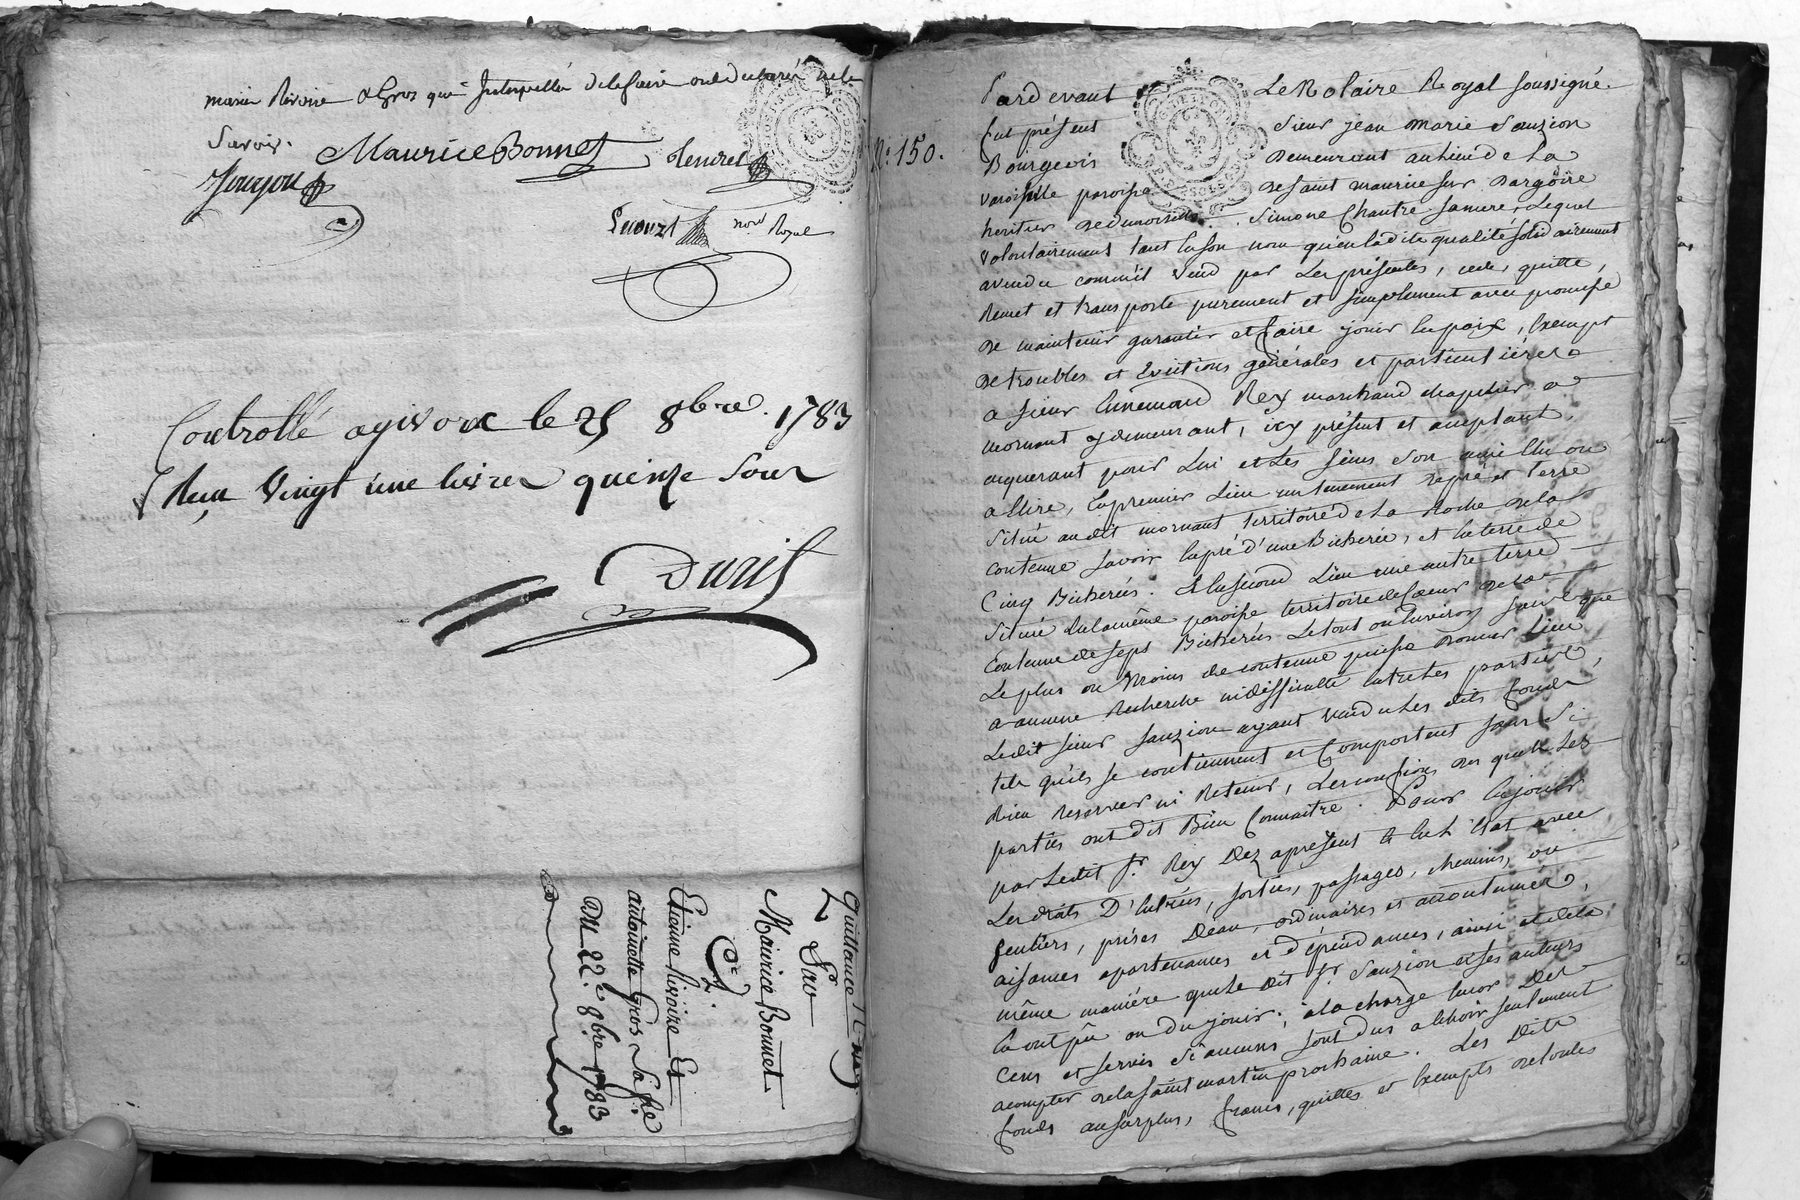 marie Rivoire & Gros que Interpellés de le faire ont déclaré ne le
Savoir.
Maurice Bonnet
Jougou
not Royal
Controllé a givors le 25 8bre. 1783
Reçu Vingt une livres quinze Sous
Duris
Quittance
2
Par
Maurice Bonnet
a
Etienne Rivoire Et
antoinette Gros Sa fe
Du 22e. 8bre 1783
No. 150.
Pardevant Le Notaire Royal soussigné.
fut présent Sieur jean marie Sauzion
Bourgeois Demeurant au lieu de La
paroisse De saint maurice sur Dargoire
heritier De demoiselle Simone Chautre sa mere, Lequel
volontairement tant en son nom qu'en ladite qualité solidairement
a vendu comme il vend par Les présentes, cede, quitte,
Remet et transporte purement et simplement avec promesse
De maintenir garantir et faire jouir en paix, Exempt
De troubles et Evictions générales et particulières
a sieur Ennemond Rey marchand chapelier a
mornant y demeurant, icy présent et acceptant
acquerant pour Lui et Les siens Son ami Elu ou
a Elire, En premier Lieu un tenement De pré et terre
Situé audit mornant territoire de La Roche De la
contenue savoir le pré d'une Bicherée, et la terre de
Cinq Bicherées. Et En second Lieu une autre terre
Située En la même paroisse territoire De la
Contenue de sept Bicherées Le tout ou Environ sans que
Le plus ou Moins de contenue puisse Donner Lieu
a aucune Recherche ni difficulté entre Les parties,
Ledit sieur Sauzion ayant vendu Les dits fonds
tels qu'ils se contiennent et Comportent sans En
Rien Reserver ni Retenir, Les confins Des quels Les
parties ont dit Bien Connaître. Pour En jouir
par Ledit Sr. Rey Dez apresent En L'Etat avec
Les droits D'Entrées, sorties, passages, chemins, ou
sentiers, prises Deau, ordinaires et accoutumées,
aisances apartenances et dépendances, ainsi et de la
même manière que Le Dit Sr. Sauzion et ses auteurs
En ont pû ou du jouir; a la charge Envor Des
Cens et servis Si aucuns sont Dus a Echoir seulement
acompter De la saint martin prochaine. Les Dits
fonds au surplus, francs, quittes et Exempts De toutes